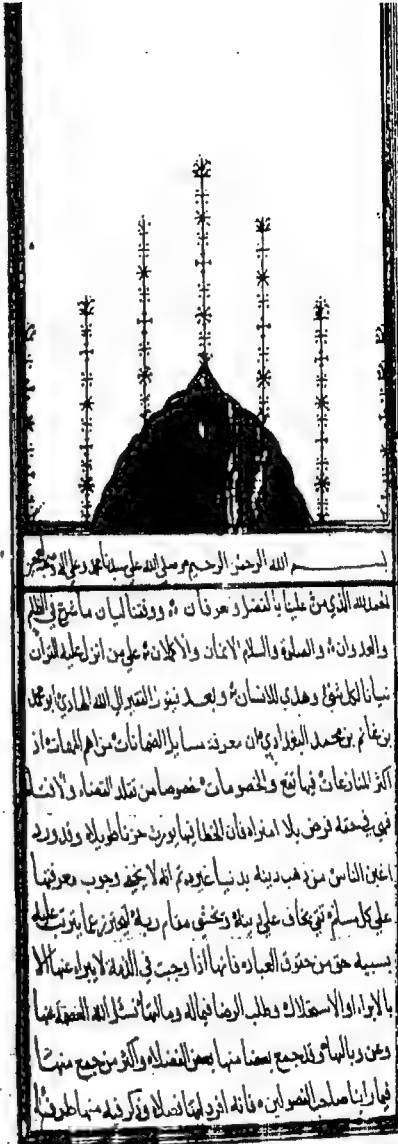 بســـم الله الرحمن الرحيم وصلى الله على سيدنا محمد وعلى اله وصحبه
الحمد لله الذي منّ علينا بالفضل والعرفان ووفقنا لبيان ما غمق في الظلم
والعدوان والصلوة والسلام الاتمان والاكملان على من انزل عليه القران
تبيانا لكل شئ وهدى للانسان وبعد فيقول الفقير الى الله الهادي ابو محمد
بن غانم بن محمد البغدادي ان معرفة مسايل الضمانات من اهم المهمات اذ
اكثر المنازعات فيها تقع والخصومات خصوصا من تقلد القضاء والافتاء
فهي في حقه فرض بلا امتراء فان الخطا فيها يورث حزنا طويلا وقد ورد
اغبن الناس من ذهب دينه بدنيا غيره ثم انه لا يخفى وجوب معرفتها
على كل مسلم تقي يخاف على دينه ويخشى مقام ربه ليحترز عما يترتب عليه
بسببه حق من حقوق العباد فانها اذا وجبت في الذمة لا يبراء عنها الا
بالابراء او الاستهلاك وطلب الرضا فياله ومالها نسئل الله العصمة عنها
وعن وبالها وقد جمع بعضا منها بعض الفضلاء واكثر من جمع منها
فيما راينا صاحب الفصولين فانه افرد لها فصلا وذكر فيه منها طرفا